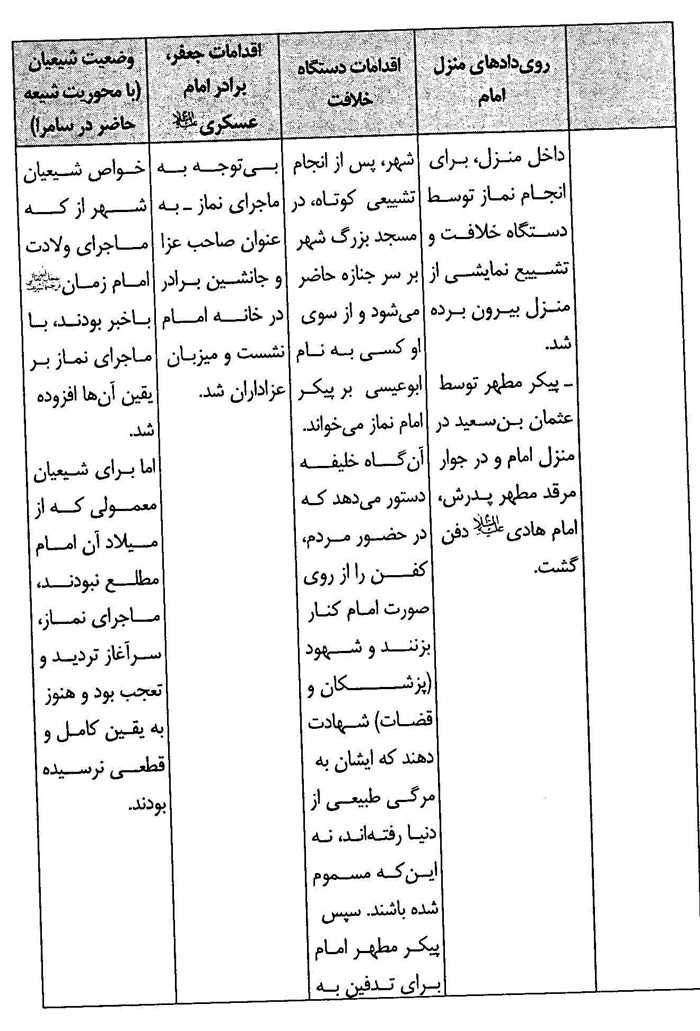 روی‌دادهای منزل
امام
اقدامات دستگاه
خلافت
اقدامات جعفر،
برادر امام
عسکری علیه‌السلام
وضعیت شیعیان
(با محوریت شیعه
حاضر در سامرا)
داخل منزل، برای
انجام نماز توسط
دستگاه خلافت و
تشییع نمایشی از
منزل بیرون برده
شد.
ـ پیکر مطهر توسط
عثمان بن‌سعید در
منزل امام و در جوار
مرقد مطهر پدرش،
امام هادی علیه‌السلام دفن
گشت.
شهر، پس از انجام
تشییعی کوتاه، در
مسجد بزرگ شهر
بر سر جنازه حاضر
می‌شود و از سوی
او کسی به نام
ابوعیسی بر پیکر
امام نماز می‌خواند.
آن‌گاه خلیفه
دستور می‌دهد که
در حضور مردم،
کفن را از روی
صورت امام کنار
بزنند و شهود
(پزشکان و
قضات) شهادت
دهند که ایشان به
مرگی طبیعی از
دنیا رفته‌اند، نه
این‌که مسموم
شده باشند. سپس
پیکر مطهر امام
برای تدفین به
بی‌توجه به
ماجرای نماز ـ به
عنوان صاحب عزا
و جانشین برادر
در خانه امام
نشست و میزبان
عزاداران شد.
خواص شیعیان
شهر از که
ماجرای ولادت
امام زمان
باخبر بودند، با
ماجرای نماز بر
یقین آن‌ها افزوده
شد.
اما برای شیعیان
معمولی که از
میلاد آن امام
مطلع نبودند،
ماجرای نماز،
سرآغاز تردید و
تعجب بود و هنوز
به یقین کامل و
قطعی نرسیده
بودند.